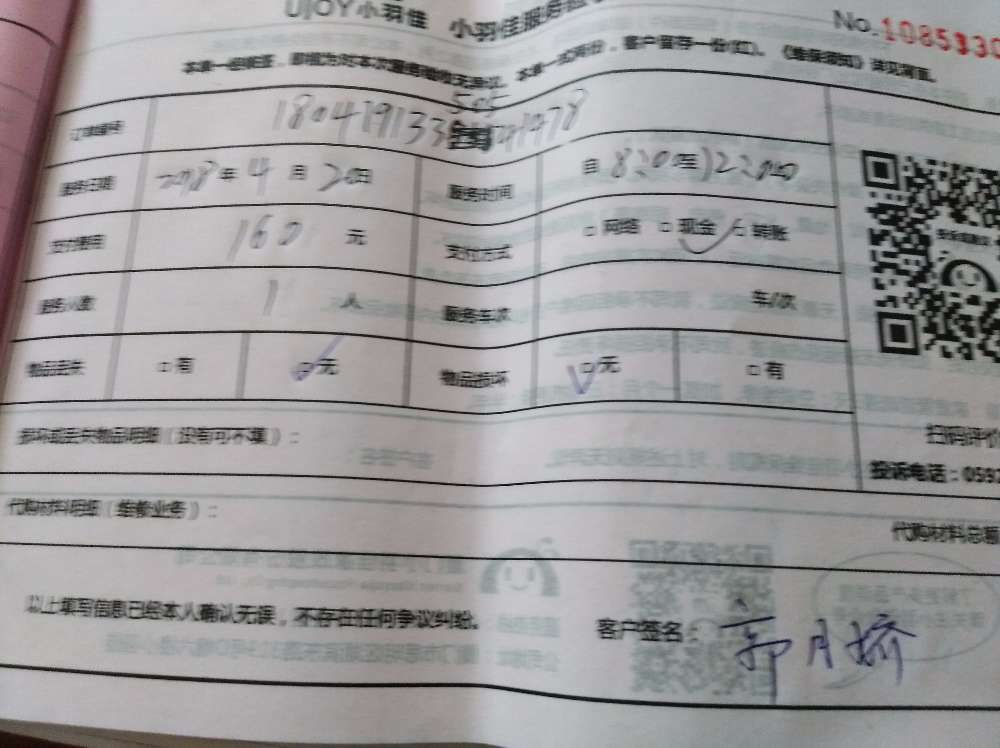 UJOY小羽佳 小羽佳服务验
No.
本单一经签, 即视为对本次服务验收无异议。本单一式两份, 客户留存一份(红)。《维保须知》详见背面。
订单编号
服务日期 2018年4月20日 服务时间 自8:00至12:00
支付费用 160元 支付方式 □网络 □现金 □转账
服务人数 1人 服务车次 车/次
物品丢失 □有 □无 物品损坏 □无 □有
损坏或丢失物品明细(没有可不填):
扫码评价
投诉电话:0592
代购材料明细(维修业务):
代购材料总额
以上填写信息已经本人确认无误,不存在任何争议纠纷。 客户签名: 郭月娇